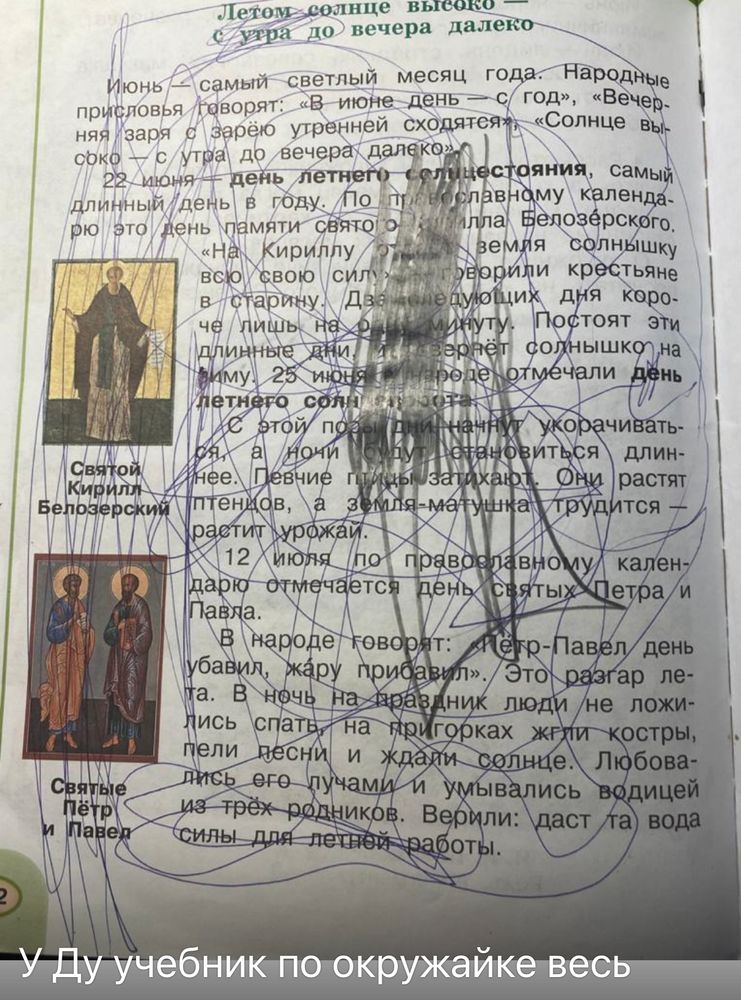 Летом солнце высоко —
с утра до вечера далеко
Июнь — самый светлый месяц года. Народные
присловья говорят: «В июне день — с год», «Вечер-
няя заря с зарёю утренней сходятся», «Солнце вы-
соко — с утра до вечера далеко».
22 июня — день летнего солнцестояния, самый
длинный день в году. По православному календа-
рю это день памяти святого Кирилла Белозе́рского.
«На Кириллу земля солнышку
всю свою силу» — говорили крестьяне
в старину. Два следующих дня коро-
че лишь на одну минуту. Постоят эти
длинные дни, и повернёт солнышко на
зиму. 25 июня в народе отмечали день
летнего солнцеворота.
С этой поры дни начнут укорачивать-
ся, а ночи будут становиться длин-
нее. Певчие птицы затихают. Они растят
птенцов, а земля-матушка трудится —
растит урожай.
12 июля по православному кален-
дарю отмечается день святых Петра и
Павла.
В народе говорят: «Пётр-Павел день
убавил, жа́ру прибавил». Это разгар ле-
та. В ночь на праздник люди не ложи-
лись спать, на пригорках жгли костры,
пели песни и ждали солнце. Любова-
лись его лучами и умывались водицей
из трёх родников. Верили: даст та вода
силы для летней работы.
Святой
Кирилл
Белозерский
Святые
Пётр
и Павел
2
У Ду учебник по окружайке весь